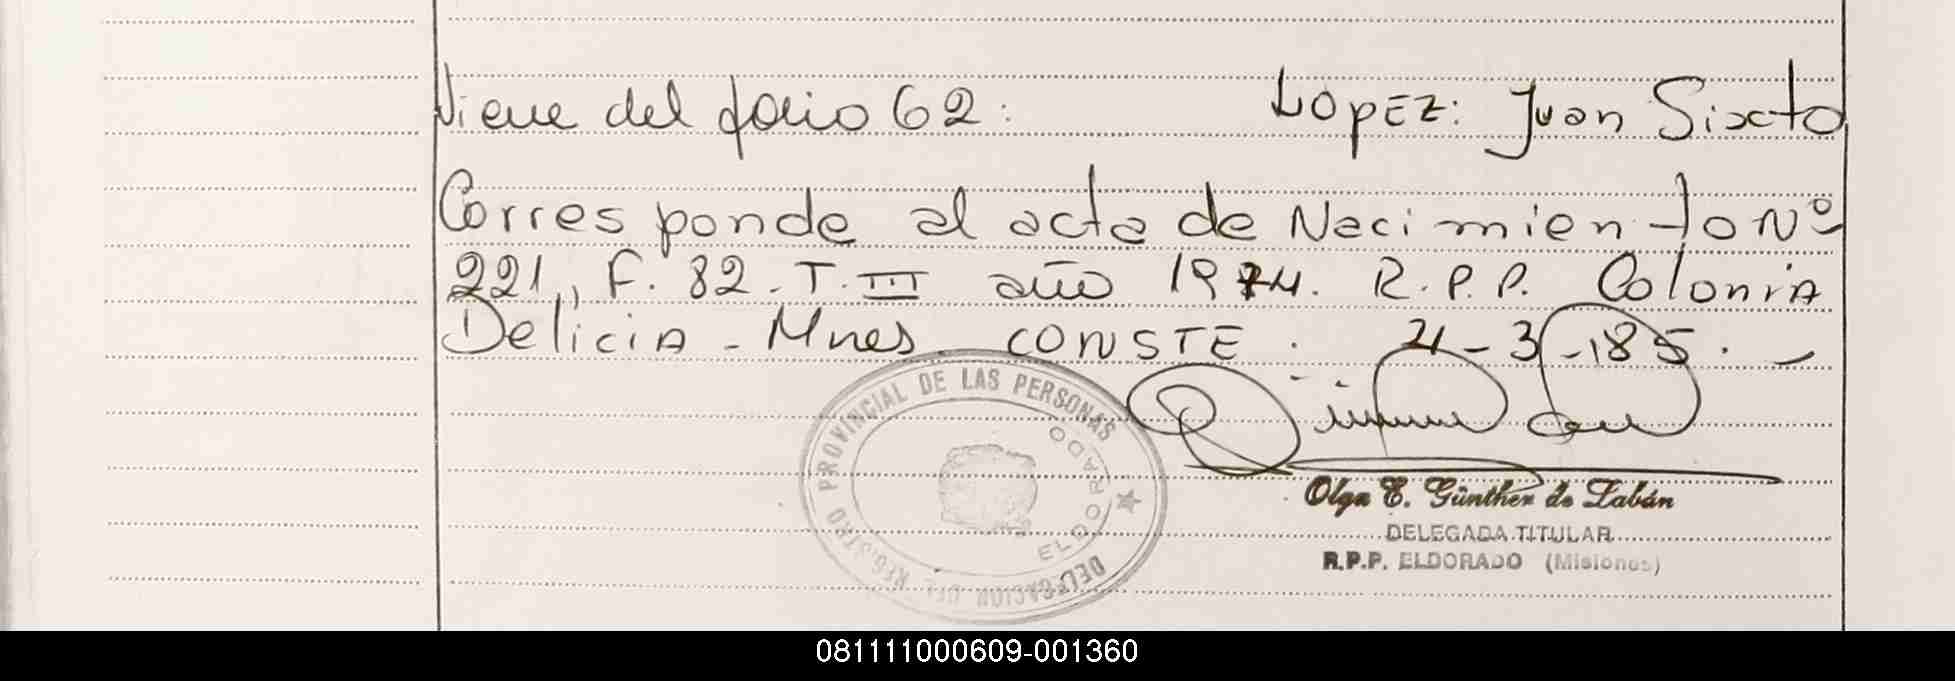 Viene del folio 62: LOPEZ: Juan Sixto
Corresponde al acta de Nacimiento Nº
221, F. 82. T. III año 1974. R.P.P. Colonia
Delicia - Mnes. CONSTE. 21-3-185. -
DELEGACION DEL REGISTRO PROVINCIAL DE LAS PERSONAS
ELDORADO
Olga E. Günther de Labán
DELEGADA TITULAR
R.P.P. ELDORADO (Misiones)
081111000609-001360